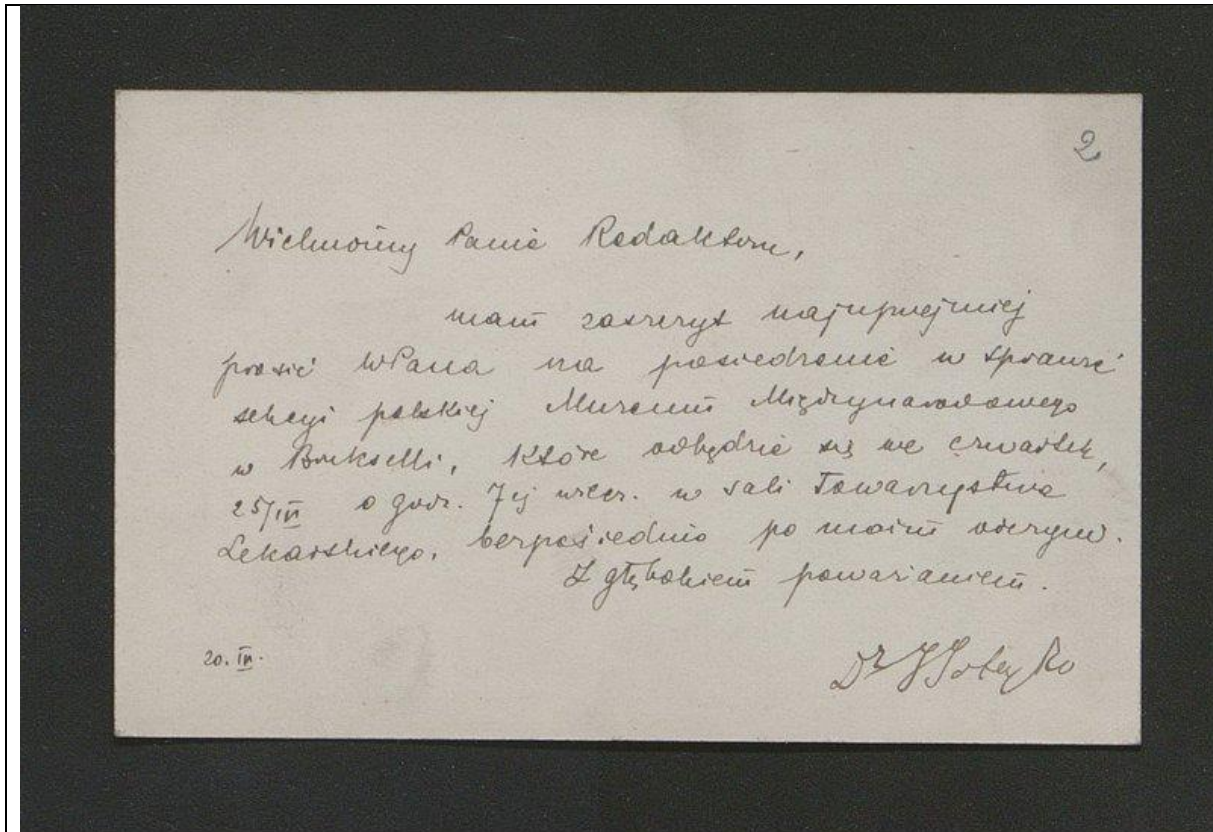 2
Wielmożny Panie Redaktorze,
mam zaszczyt najuprzejmiej
prosić WPana na posiedzenie w sprawie
sekcyi polskiej Muzeum Międzynarodowego
w Brukselli, które odbędzie się we czwartek,
25/III o godz. 7ej wiecz. w sali Towarzystwa
Lekarskiego, bezpośrednio po moim odczycie.
Z głębokiem poważaniem.
20. III.
Dr J Joteyko